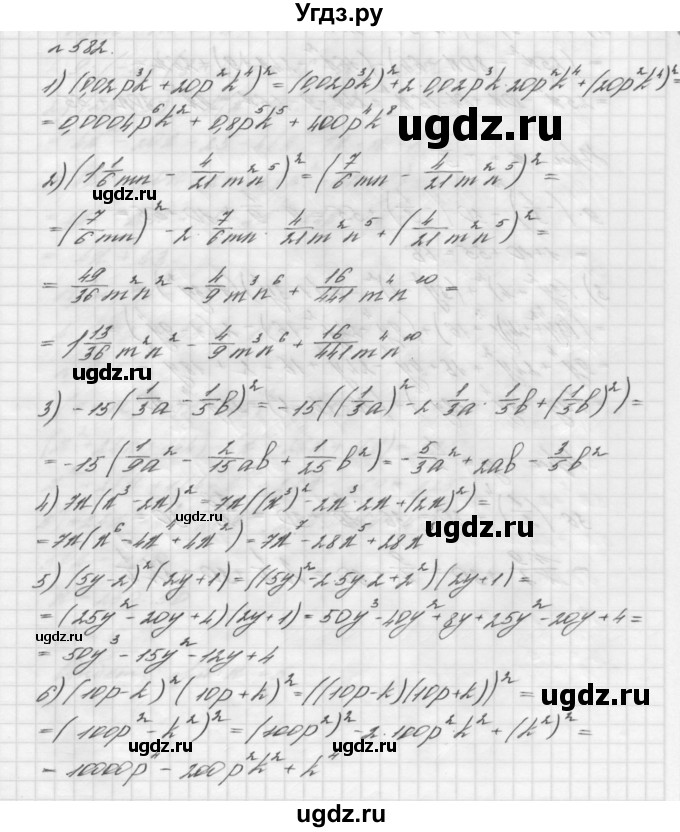 Угдз.ру
№582.
1) (0,02p³k + 20p²k⁴)² = (0,02p³k)² + 2·0,02p³k·20p²k⁴ + (20p²k⁴)² =
= 0,0004p⁶k² + 0,8p⁵k⁵ + 400p⁴k⁸
ugdz.ru
2) (1 1/6 mn - 4/21 m²n⁵)² = (7/6 mn - 4/21 m²n⁵)² =
ugdz.ru
= (7/6 mn)² - 2·7/6 mn·4/21 m²n⁵ + (4/21 m²n⁵)² =
ugdz.ru
= 49/36 m²n² - 4/9 m³n⁶ + 16/441 m⁴n¹⁰ =
= 1 13/36 m²n² - 4/9 m³n⁶ + 16/441 m⁴n¹⁰
ugdz.ru
3) -15(1/3a - 1/5b)² = -15((1/3a)² - 2·1/3a·1/5b + (1/5b)²) =
= -15(1/9a² - 2/15ab + 1/25b²) = -5/3a² + 2ab - 3/5b²
4) 7x(x³ - 2x)² = 7x((x³)² - 2x³·2x + (2x)²) =
ugdz.ru
= 7x(x⁶ - 4x⁴ + 4x²) = 7x⁷ - 28x⁵ + 28x
ugdz.ru
5) (5y-2)²(2y+1) = ((5y)² - 2·5y·2 + 2²)(2y+1) =
= (25y² - 20y + 4)(2y+1) = 50y³ - 40y² + 8y + 25y² - 20y + 4 =
= 50y³ - 15y² - 12y + 4
6) (10p-k)²(10p+k)² = ((10p-k)(10p+k))² =
ugdz.ru
= (100p² - k²)² = (100p²)² - 2·100p²k² + (k²)² =
ugdz.ru
ugdz.ru
= 10000p⁴ - 200p²k² + k⁴
ugdz.ru
ugdz.ru